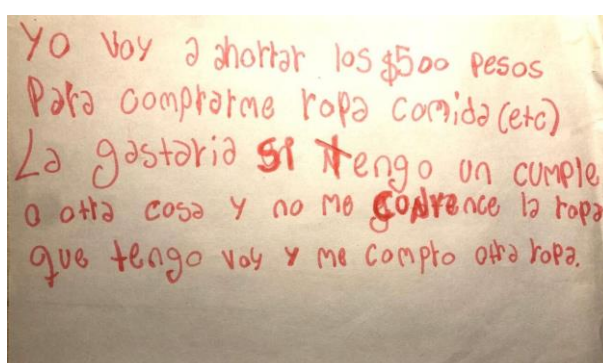 Yo voy a ahorrar los $500 pesos
Para comprarme ropa comida (etc)
La gastaria si tengo un cumple
o otra cosa y no me convence la ropa
que tengo voy y me compro otra ropa.